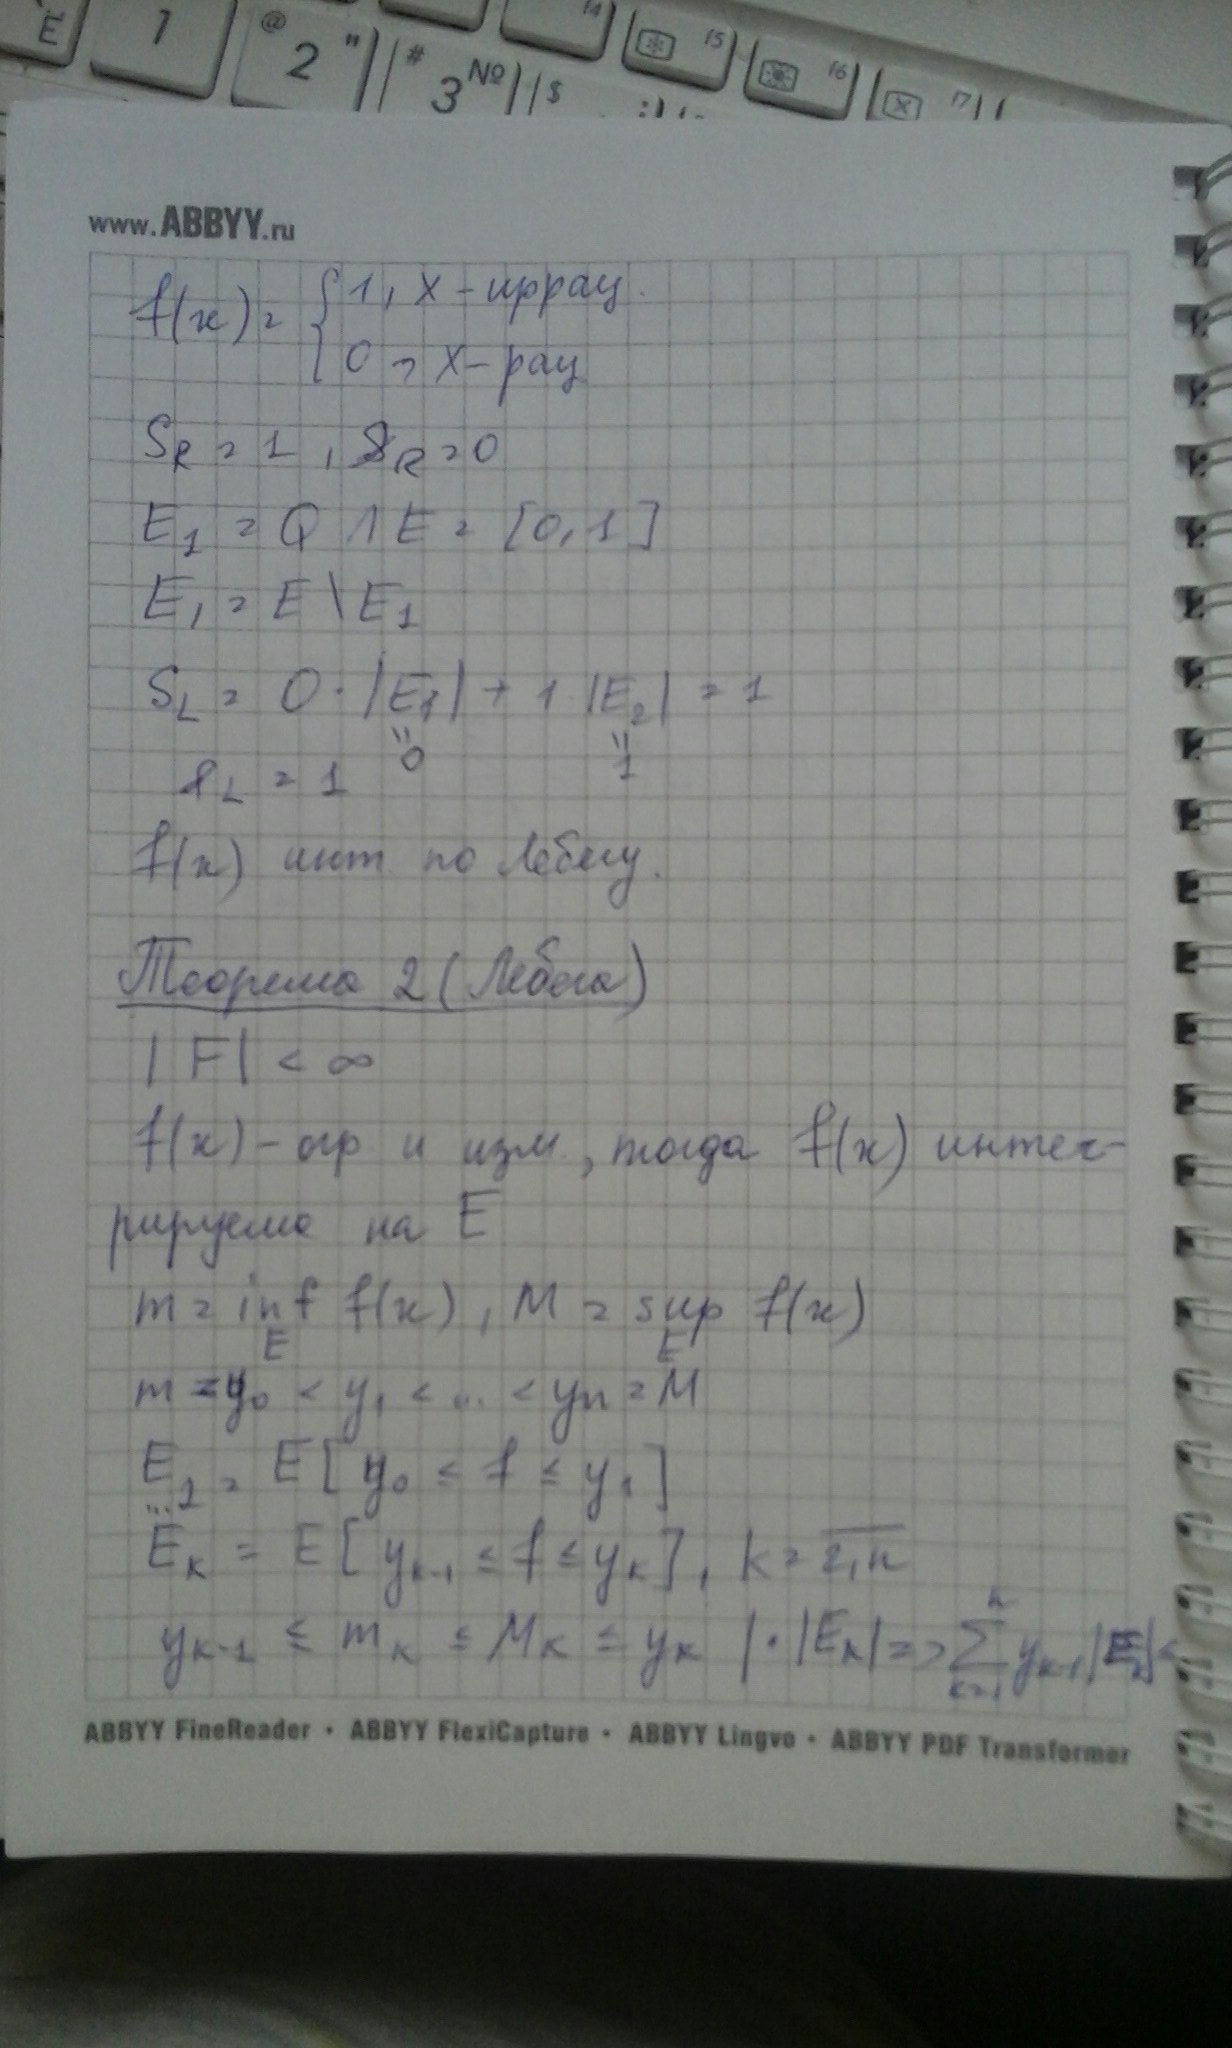 Ё 1 @ 2 " # 3 № $ 14 15 16 17
www.ABBYY.ru
f(x) = { 1, x - иррац.
0, x - рац
S_R = 1, s_R = 0
E_1 = Q ∩ E = [0, 1]
E_1 = E \ E_1
S_L = 0 · |E_1| + 1 · |E_2| = 1
" 0 " 1
s_L = 1
f(x) инт. по Лебегу.
Теорема 2 (Лебега)
|E| < ∞
f(x) - огр и изм., тогда f(x) интег-
рируема на E
m = inf f(x), M = sup f(x)
E E
m = y_0 < y_1 < ... < y_n = M
E_1 = E [ y_0 ≤ f ≤ y_1 ]
...
E_k = E [ y_{k-1} ≤ f ≤ y_k ], k = \overline{2,n}
y_{k-1} ≤ m_k ≤ M_k ≤ y_k | · |E_k| => \sum_{k=1}^{n} y_{k-1} |E_k| ≤
ABBYY FineReader • ABBYY FlexiCapture • ABBYY Lingvo • ABBYY PDF Transformer